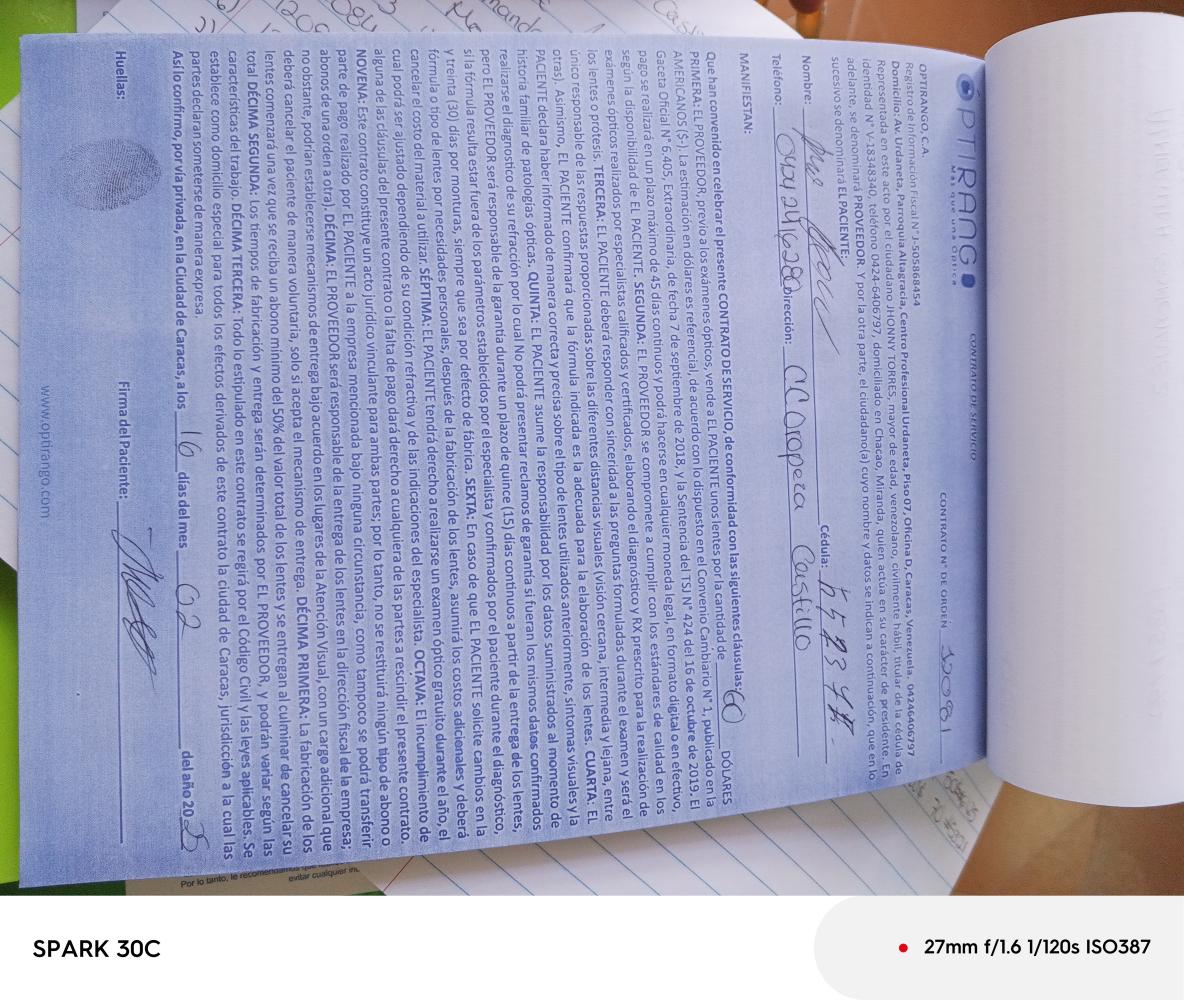 OPTIRANGO
Más que una Óptica
CONTRATO DE SERVICIO
CONTRATO N° DE ORDEN 12081
OPTIRANGO, C.A.
Registro de Información Fiscal N° J-505868454
Domicilio: Av. Urdaneta, Parroquia Altagracia, Centro Profesional Urdaneta, Piso 07, Oficina D, Caracas, Venezuela. 04246406797
Representada en este acto por el ciudadano JHONNY TORRES, mayor de edad, venezolano, civilmente hábil, titular de la cédula de
identidad N° V-18348340, teléfono 0424-6406797, domiciliado en Chacao, Miranda, quien actúa en su carácter de presidente. En
adelante, se denominará PROVEEDOR. Y por la otra parte, el ciudadano(a) cuyo nombre y datos se indican a continuación, que en lo
sucesivo se denominará EL PACIENTE:
Nombre: Cédula:
Teléfono: Dirección: CC Castillo
MANIFIESTAN:
Que han convenido en celebrar el presente CONTRATO DE SERVICIO, de conformidad con las siguientes cláusulas
PRIMERA: EL PROVEEDOR, previo a los exámenes ópticos, vende a EL PACIENTE unos lentes por la cantidad de 60 DÓLARES
AMERICANOS ($-). La estimación en dólares es referencial, de acuerdo con lo dispuesto en el Convenio Cambiario N° 1, publicado en la
Gaceta Oficial N° 6.405, Extraordinaria, de fecha 7 de septiembre de 2018, y la Sentencia del TSJ N° 424 del 16 de octubre de 2019. El
pago se realizará en un plazo máximo de 45 días continuos y podrá hacerse en cualquier moneda legal, en formato digital o en efectivo,
según la disponibilidad de EL PACIENTE. SEGUNDA: EL PROVEEDOR se compromete a cumplir con los estándares de calidad en los
exámenes ópticos realizados por especialistas calificados y certificados, elaborando el diagnóstico y RX prescrito para la realización de
los lentes o prótesis. TERCERA: EL PACIENTE deberá responder con sinceridad a las preguntas formuladas durante el examen y será el
único responsable de las respuestas proporcionadas sobre las diferentes distancias visuales (visión cercana, intermedia y lejana, entre
otras). Asimismo, EL PACIENTE confirmará que la fórmula indicada es la adecuada para la elaboración de los lentes. CUARTA: EL
PACIENTE declara haber informado de manera correcta y precisa sobre el tipo de lentes utilizados anteriormente, síntomas visuales y la
historia familiar de patologías ópticas. QUINTA: EL PACIENTE asume la responsabilidad por los datos suministrados al momento de
realizarse el diagnostico de su refracción por lo cual No podrá presentar reclamos de garantía si fueran los mismos datos confirmados
pero EL PROVEEDOR será responsable de la garantía durante un plazo de quince (15) días continuos a partir de la entrega de los lentes,
si la fórmula resulta estar fuera de los parámetros establecidos por el especialista y confirmados por el paciente durante el diagnóstico,
y treinta (30) días por monturas, siempre que sea por defecto de fábrica. SEXTA: En caso de que EL PACIENTE solicite cambios en la
fórmula o tipo de lentes por necesidades personales, después de la fabricación de los lentes, asumirá los costos adicionales y deberá
cancelar el costo del material a utilizar. SÉPTIMA: EL PACIENTE tendrá derecho a realizarse un examen óptico gratuito durante el año, el
cual podrá ser ajustado dependiendo de su condición refractiva y de las indicaciones del especialista. OCTAVA: El incumplimiento de
alguna de las cláusulas del presente contrato o la falta de pago dará derecho a cualquiera de las partes a rescindir el presente contrato.
NOVENA: Este contrato constituye un acto jurídico vinculante para ambas partes; por lo tanto, no se restituirá ningún tipo de abono o
parte de pago realizado por EL PACIENTE a la empresa mencionada bajo ninguna circunstancia, como tampoco se podrá transferir
abonos de una orden a otra). DÉCIMA: EL PROVEEDOR será responsable de la entrega de los lentes en la dirección fiscal de la empresa;
no obstante, podrían establecerse mecanismos de entrega bajo acuerdo en los lugares de la Atención Visual, con un cargo adicional que
deberá cancelar el paciente de manera voluntaria, solo si acepta el mecanismo de entrega. DÉCIMA PRIMERA: La fabricación de los
lentes comenzará una vez que se reciba un abono mínimo del 50% del valor total de los lentes y se entregan al culminar de cancelar su
total DÉCIMA SEGUNDA: Los tiempos de fabricación y entrega serán determinados por EL PROVEEDOR, y podrán variar según las
características del trabajo. DÉCIMA TERCERA: Todo lo estipulado en este contrato se regirá por el Código Civil y las leyes aplicables. Se
establece como domicilio especial para todos los efectos derivados de este contrato la ciudad de Caracas, jurisdicción a la cual las
partes declaran someterse de manera expresa.
Así lo confirmo, por vía privada, en la Ciudad de Caracas, a los 16 días del mes 02 del año 2025
Huellas: Firma del Paciente:
www.optirango.com
Por lo tanto, le recomendamos que
evitar cualquier
SPARK 30C
27mm f/1.6 1/120s ISO387